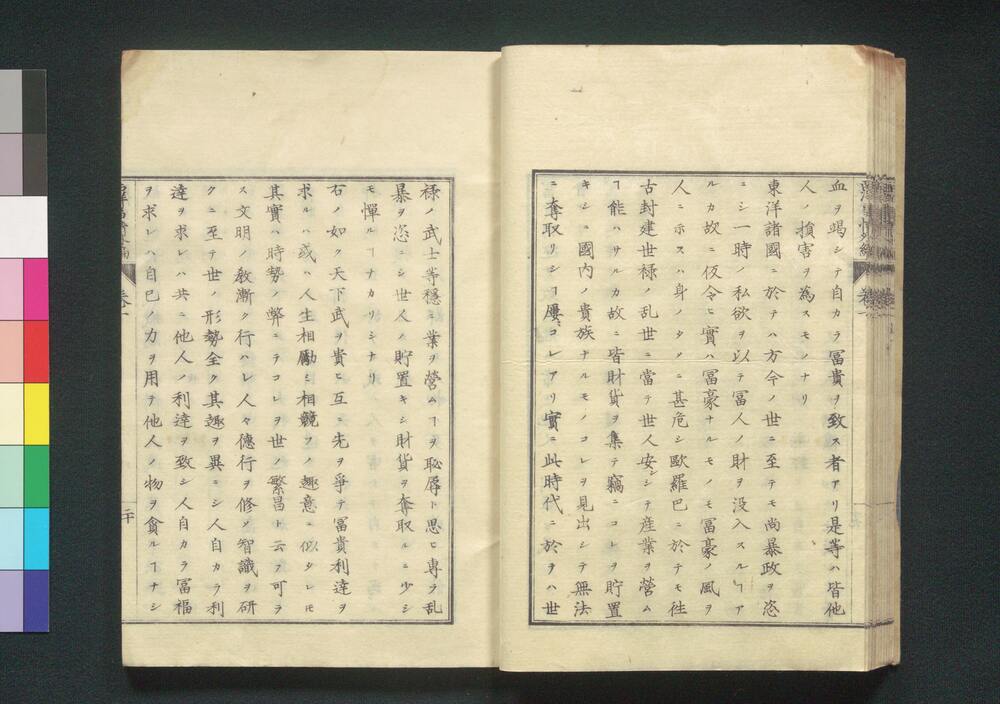 血ヲ竭シテ自カラ冨貴ヲ致ス者アリ是等ハ皆他
人ノ損害ヲ為スモノナリ
東洋諸國ニ於テハ方今ノ世ニ至テモ尚暴政ヲ恣
ニシ一時ノ私欲ヲ以テ冨人ノ財ヲ没入スルヿア
ルカ故ニ仮令ヒ實ハ冨豪ナルモノモ冨豪ノ風ヲ
人ニ示スハ身ノタメニ甚危シ歐羅巴ニ於テモ徃
古封建世禄ノ乱世ニ當テ世人安シテ産業ヲ營ム
ヿ能ハサルカ故ニ皆財貨ヲ集テ竊ニコレヲ貯置
キシニ國内ノ貴族ナルモノコレヲ見出シテ無法
ニ奪取リシヿ屡〻コレアリ實ニ此時代ニ於テハ世
禄ノ武士等穏ニ業ヲ營ムヿヲ恥辱ト思ヒ専ラ乱
暴ヲ恣ニシ世人ノ貯置キシ財貨ヲ奪取ルニ少シ
モ憚ルヿナカリシナリ
右ノ如ク天下武ヲ貴ヒ互ニ先ヲ爭テ冨貴利達ヲ
求ルハ或ハ人生相勵ミ相競フノ趣意ニ似タレ𪜈
其實ハ時勢ノ弊ニテコレヲ世ノ繁昌ト云フ可ラ
ス文明ノ教漸ク行ハレ人々德行ヲ修メ智識ヲ研
クニ至テ世ノ形勢全ク其趣ヲ異ニシ人自カラ利
達ヲ求レハ共ニ他人ノ利達ヲ致シ人自カラ冨福
ヲ求レハ自己ノ力ヲ用テ他人ノ物ヲ貪ルヿナシ
卷一
二十